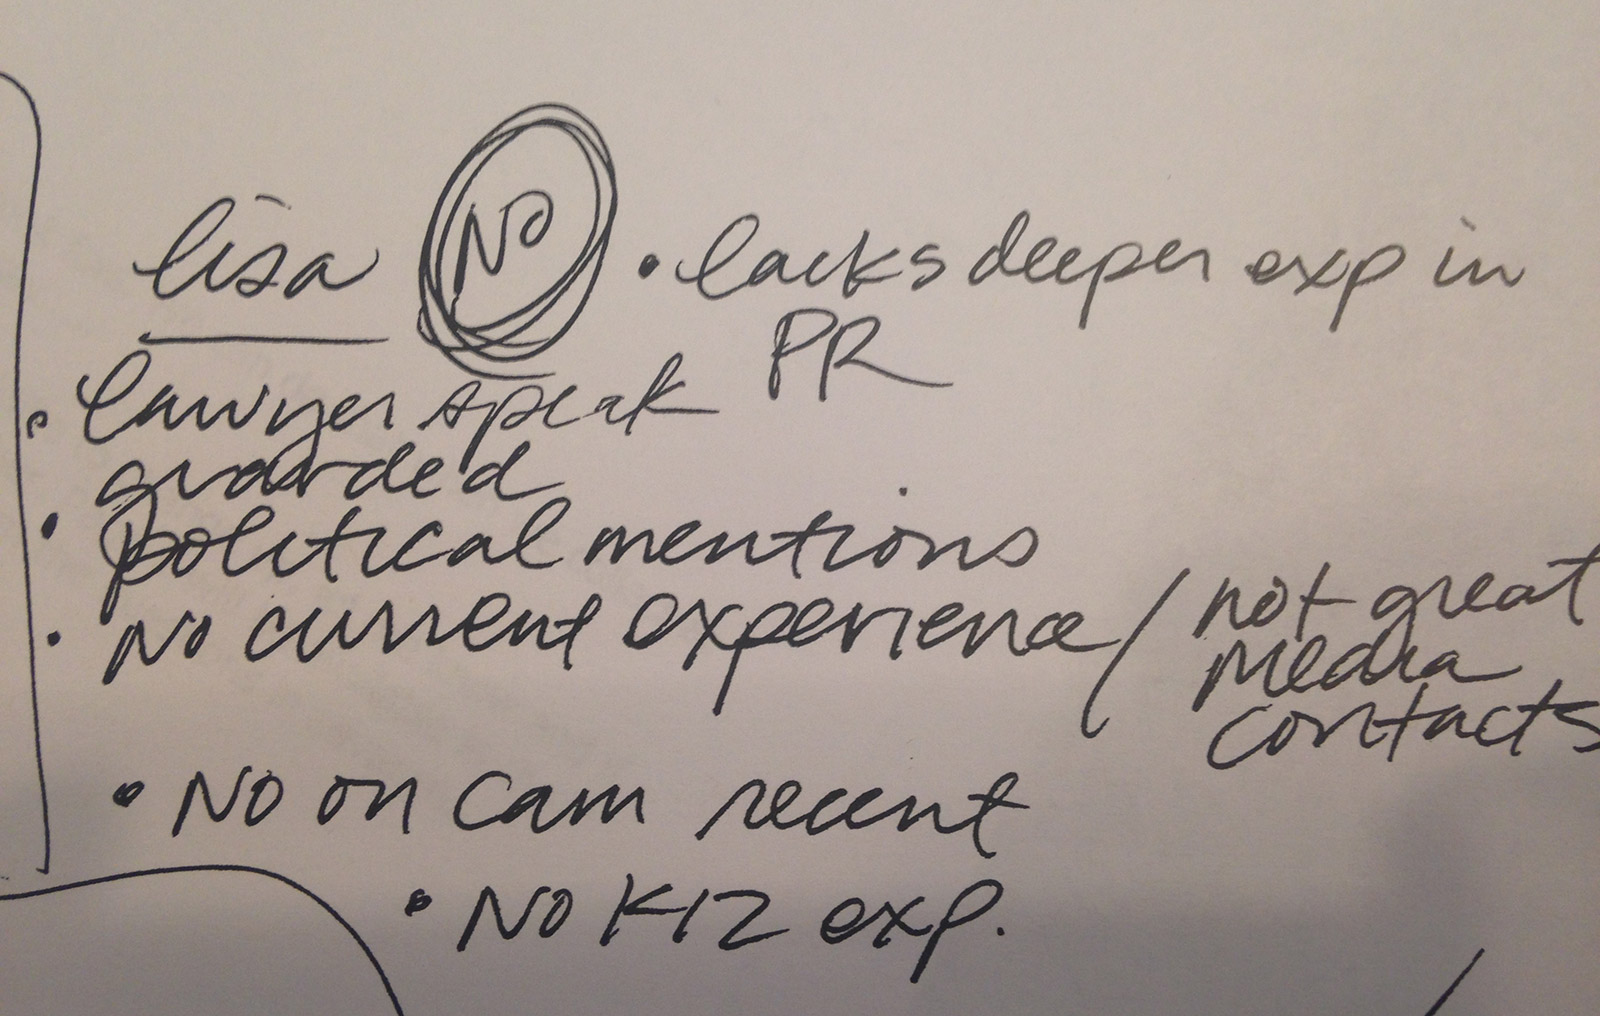 lisa NO • lacks deeper exp in
PR
• lawyer speak
guarded
• political mentions
• No current experience / not great
media
contacts
• NO on cam recent
• NO K12 exp.